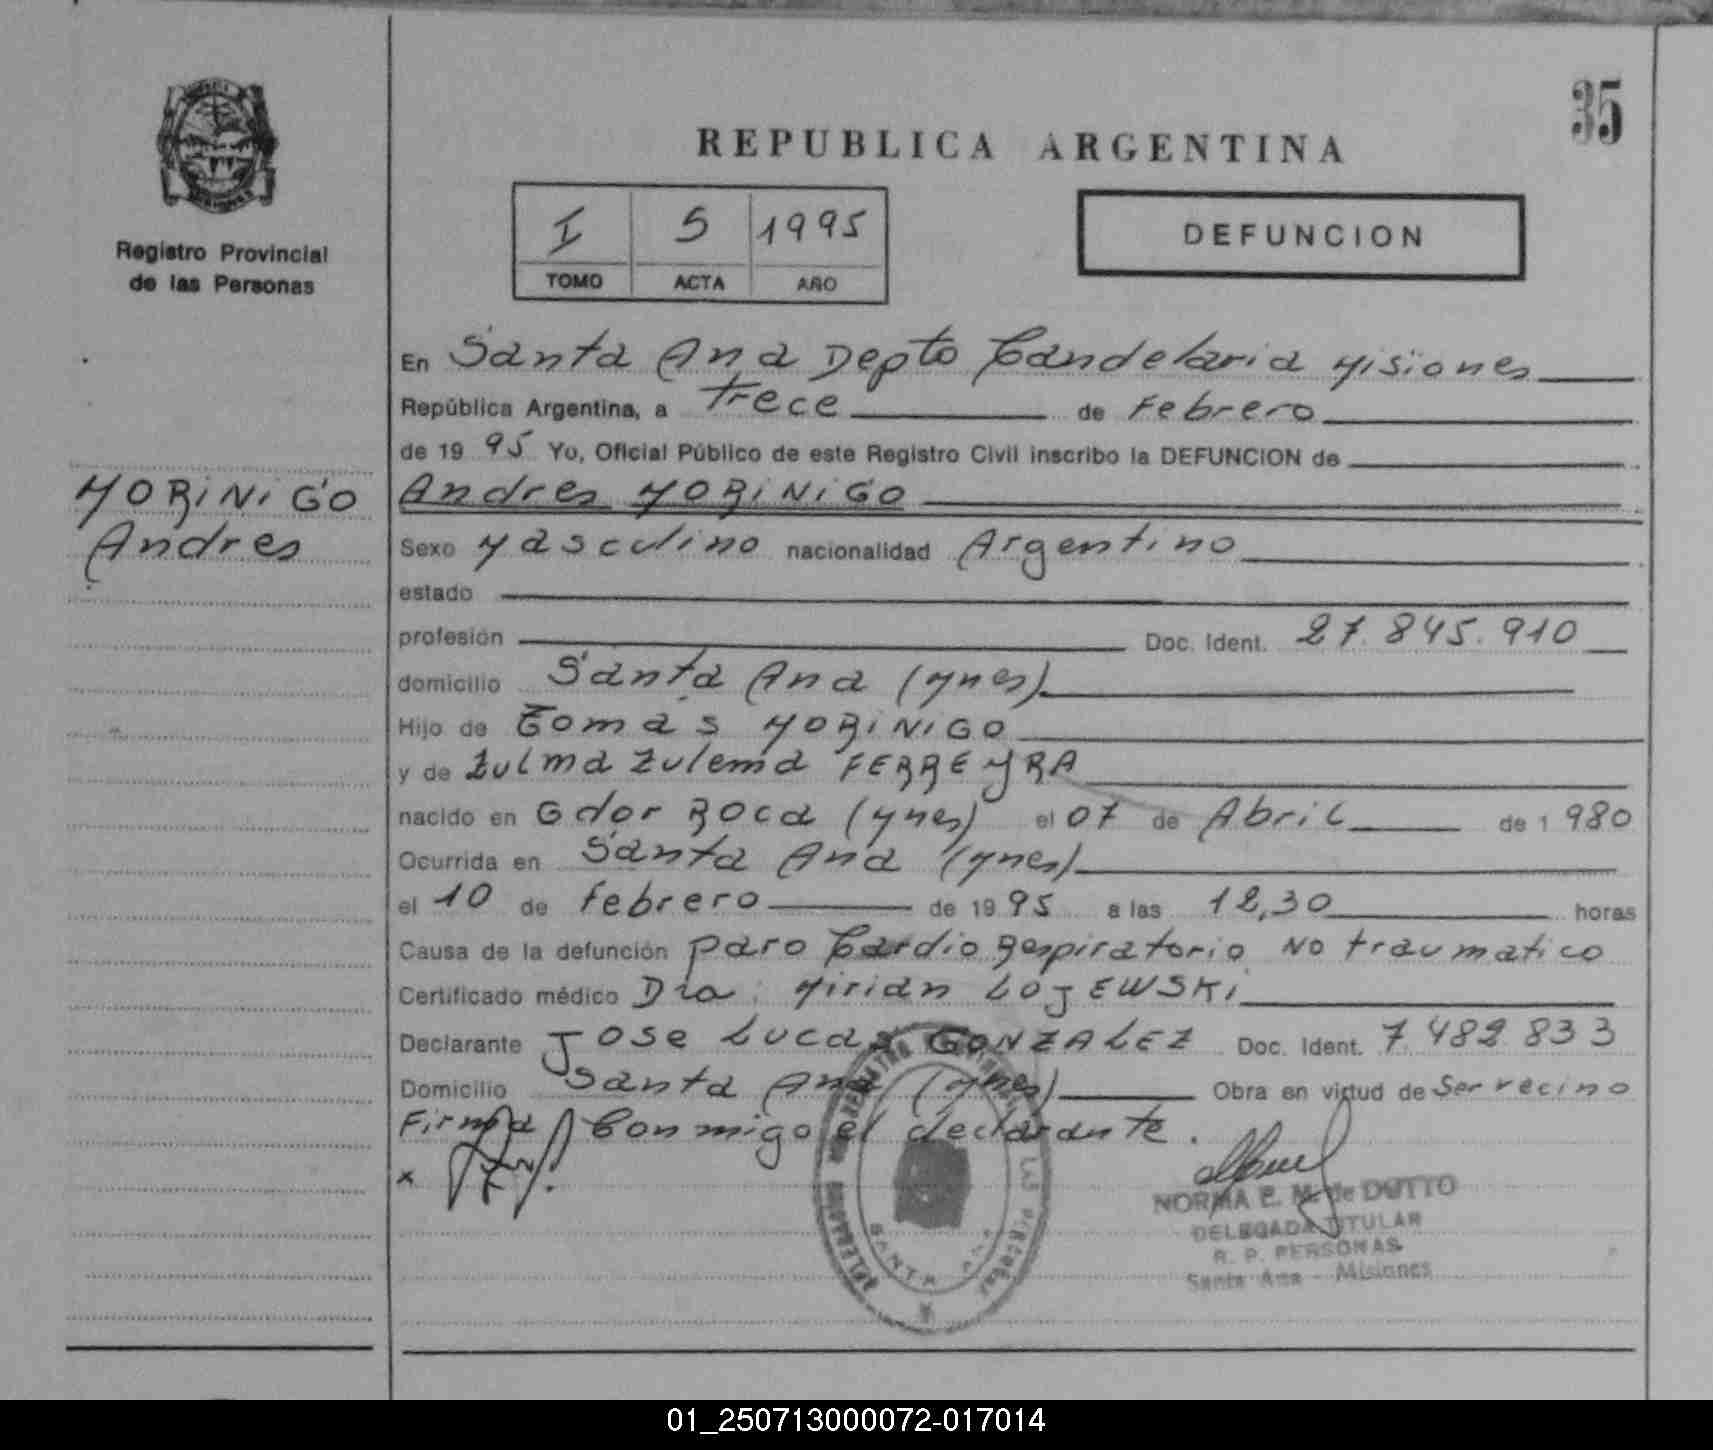 35
REPUBLICA ARGENTINA
I 5 1995
TOMO ACTA AÑO
DEFUNCION
Registro Provincial
de las Personas
MORINIGO
Andres
En Santa Ana Depto Candelaria Misiones
República Argentina, a Trece de Febrero
de 19 95 Yo, Oficial Público de este Registro Civil inscribo la DEFUNCION de
Andres MORINIGO
Sexo Masculino nacionalidad Argentino
estado
profesión Doc. Ident. 27.845.910
domicilio Santa Ana (Mnes)
Hijo de Tomás MORINIGO
y de Zulma Zulema FERREYRA
nacido en Gdor Roca (Mnes) el 07 de Abril de 1 980
Ocurrida en Santa Ana (Mnes)
el 10 de febrero de 19 95 a las 12,30 horas
Causa de la defunción paro Cardio Respiratorio No traumatico
Certificado médico Dra. Mirian LOJEWSKi
Declarante Jose Lucas GONZALEZ Doc. Ident. 7.482 833
Domicilio Santa Ana (Mnes) Obra en virtud de Ser vecino
Firma Conmigo el declarante.
x
NORMA E. M. de DUTTO
DELEGADA TITULAR
R. P. PERSONAS
Santa Ana - Misiones
SANTA ANA
01_250713000072-017014